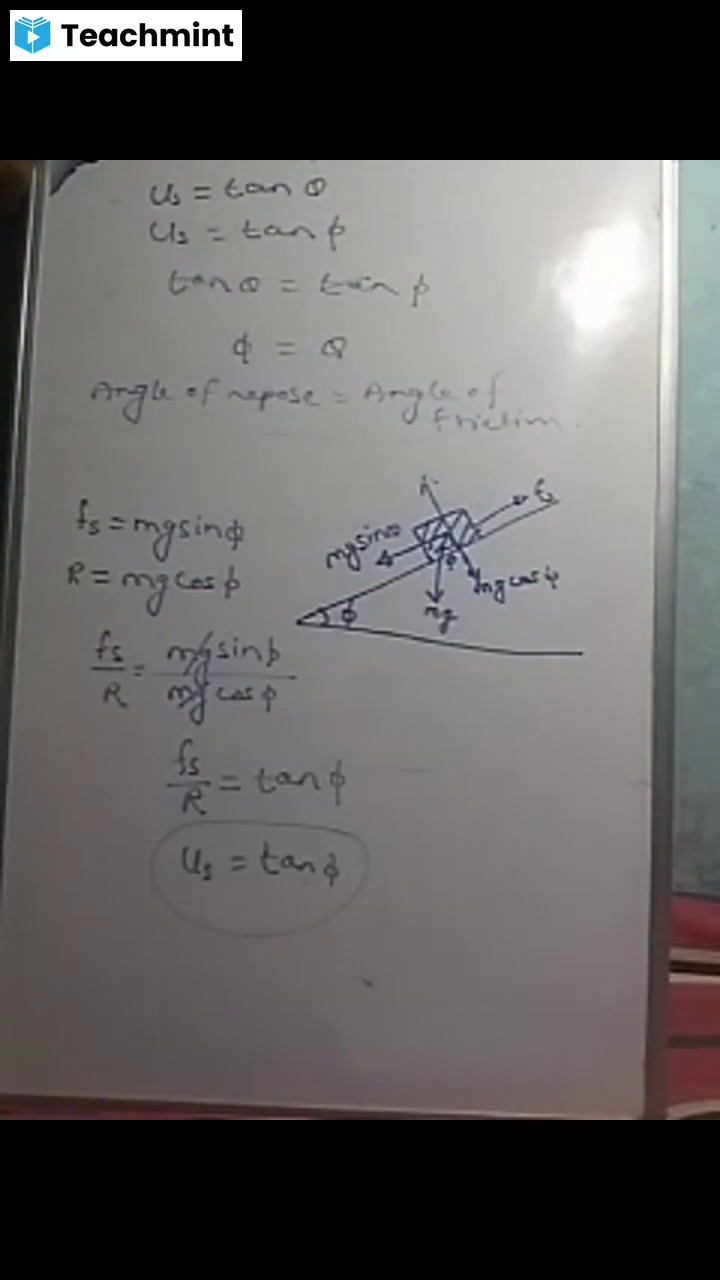 Teachmint
us = tan θ
us = tan ϕ
tan θ = tan ϕ
ϕ = θ
Angle of repose = Angle of
friction.
fs = mgsinϕ
R = mgcosϕ
fs/R = mgsinϕ/mgcosϕ
fs/R = tanϕ
us = tanϕ
fs
mgsin
mgcosϕ
ϕ
mg
ϕ